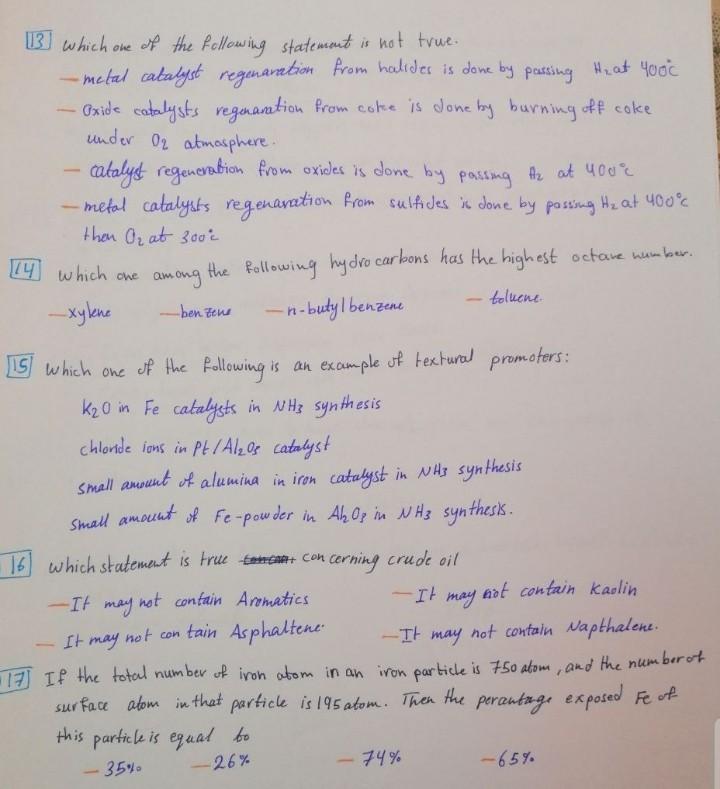 13 Which one of the following statement is not true.
– metal catalyst regenaration from halides is done by passing H₂ at 400°C
– Oxide catalysts regenaration from coke is done by burning off coke
under O₂ atmosphere.
– catalyst regeneration from oxides is done by passing H₂ at 400°C
– metal catalysts regenaration from sulfides is done by passing H₂ at 400°C
then O₂ at 300°C
14 Which one among the following hydrocarbons has the highest octane number.
– xylene – benzene – n-butylbenzene – toluene.
15 Which one of the following is an example of textural promoters:
K₂O in Fe catalysts in NH3 synthesis
chloride ions in Pt/Al₂O₃ catalyst
small amount of alumina in iron catalyst in NH3 synthesis
small amount of Fe-powder in Al₂O₃ in NH3 synthesis.
16 Which statement is true concerning crude oil
– It may not contain Aromatics – It may not contain Kaolin
– It may not contain Asphaltene. – It may not contain Napthalene.
17 If the total number of iron atom in an iron particle is 750 atom, and the number of
surface atom in that particle is 195 atom. Then the perantage exposed Fe of
this particle is equal to
– 35% – 26% – 74% – 65%